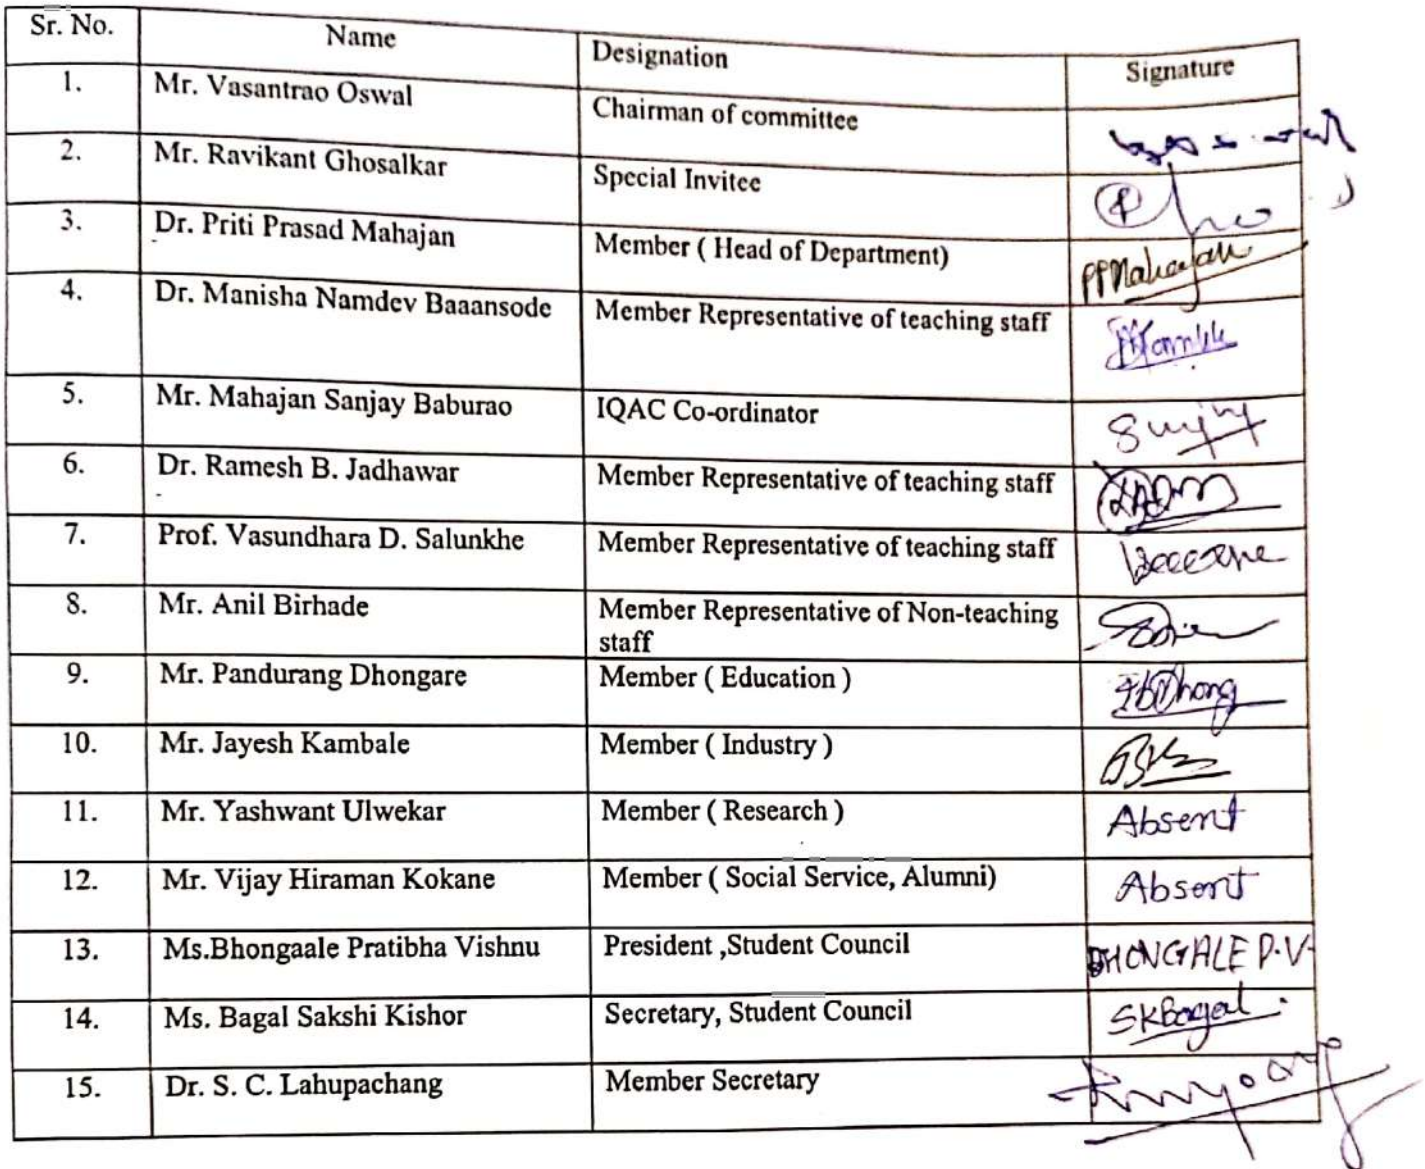 Sr. No. Name Designation Signature
1. Mr. Vasantrao Oswal Chairman of committee
2. Mr. Ravikant Ghosalkar Special Invitee
3. Dr. Priti Prasad Mahajan Member ( Head of Department) PPMahajan
4. Dr. Manisha Namdev Baaansode Member Representative of teaching staff
5. Mr. Mahajan Sanjay Baburao IQAC Co-ordinator
6. Dr. Ramesh B. Jadhawar Member Representative of teaching staff
7. Prof. Vasundhara D. Salunkhe Member Representative of teaching staff
8. Mr. Anil Birhade Member Representative of Non-teaching
staff
9. Mr. Pandurang Dhongare Member ( Education )
10. Mr. Jayesh Kambale Member ( Industry )
11. Mr. Yashwant Ulwekar Member ( Research ) Absent
12. Mr. Vijay Hiraman Kokane Member ( Social Service, Alumni) Absent
13. Ms.Bhongaale Pratibha Vishnu President ,Student Council BHONGALE P.V.
14. Ms. Bagal Sakshi Kishor Secretary, Student Council SKBagal
15. Dr. S. C. Lahupachang Member Secretary